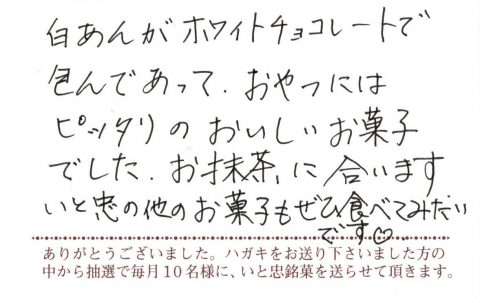 白あんがホワイトチョコレートで
包んであって、おやつには
ピッタリのおいしいお菓子
でした。お抹茶に合います
いと忠の他のお菓子もぜひ食べてみたい
です♡
ありがとうございました。ハガキをお送り下さいました方の
中から抽選で毎月10名様に、いと忠銘菓を送らせて頂きます。